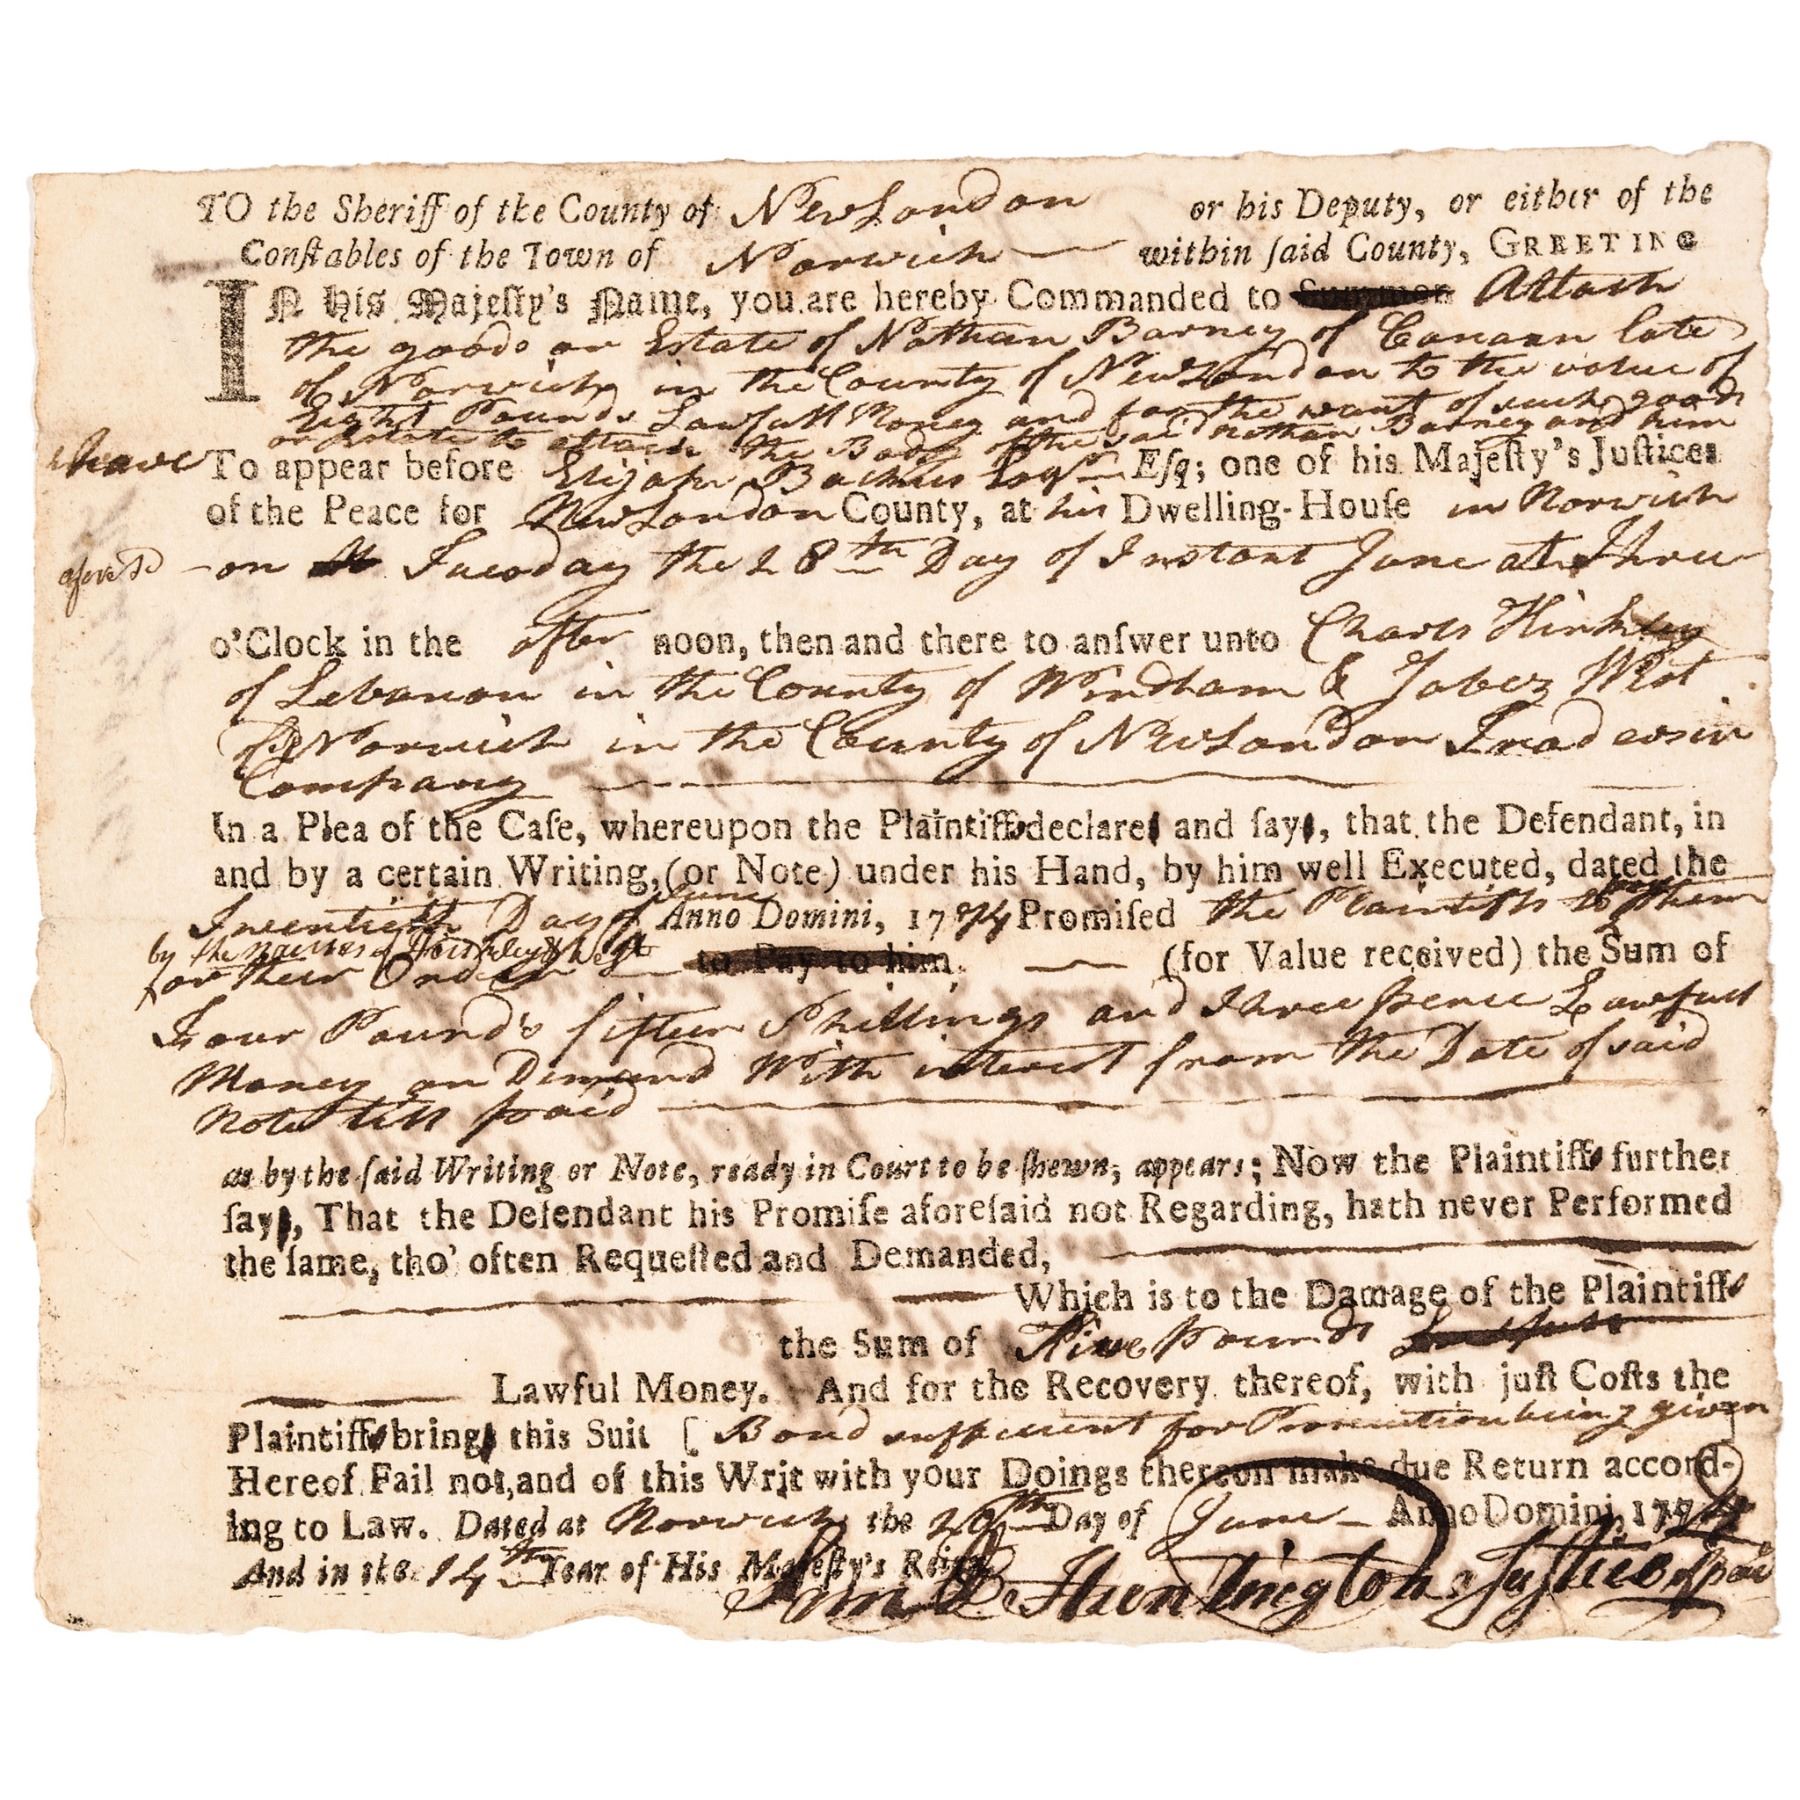 TO the Sheriff of the County of NewLondon or his Deputy, or either of the
Conſtables of the Town of Norwich within ſaid County, GREETING
IN His Majeſty's Name, you are hereby Commanded to Summon Attach
the goods or Estate of Nathan Barney of Canaan late
of Norwich in the County of NewLondon to the value of
Eight Pounds Lawfull Money and for the want of such goods
or Estate to attach the Body of the said Nathan Barney and him
have To appear before Elijah Backus Esqr Eſq; one of his Majeſty's Juſtices
of the Peace for NewLondon County, at his Dwelling-Houſe in Norwich
aforesd on Tuesday the 28th Day of Instant June at Three
o'Clock in the after noon, then and there to anſwer unto Charles Hinkley
of Lebanon in the County of Windham & Jabez West
of Norwich in the County of NewLondon Traders in
Company
In a Plea of the Caſe, whereupon the Plaintiffs declare and ſay, that the Defendant, in
and by a certain Writing, (or Note) under his Hand, by him well Executed, dated the
Twentieth Day of June Anno Domini, 1774 Promiſed the Plaintiffs to pay them
by the names of Hinkley & West
or their Order to Pay to him (for Value received) the Sum of
Four Pound's fifteen Shillings and Three pence Lawfull
Money on Demand With interest from the Date of said
Note till paid
as by the ſaid Writing or Note, ready in Court to be ſhewn, appears; Now the Plaintiffs further
ſay, That the Defendant his Promiſe aforeſaid not Regarding, hath never Performed
the ſame, tho' often Requeſted and Demanded,
Which is to the Damage of the Plaintiffs
the Sum of Five pounds Lawfull
Lawful Money. And for the Recovery thereof, with juſt Coſts the
Plaintiffs bring this Suit [Bond sufficient for Prosecution being given]
Hereof Fail not, and of this Writ with your Doings thereon make due Return accord-
ing to Law. Dated at Norwich the 20th Day of June Anno Domini, 1774
And in the 14th Year of His Majeſty's Reign
Huntington Justice of peac